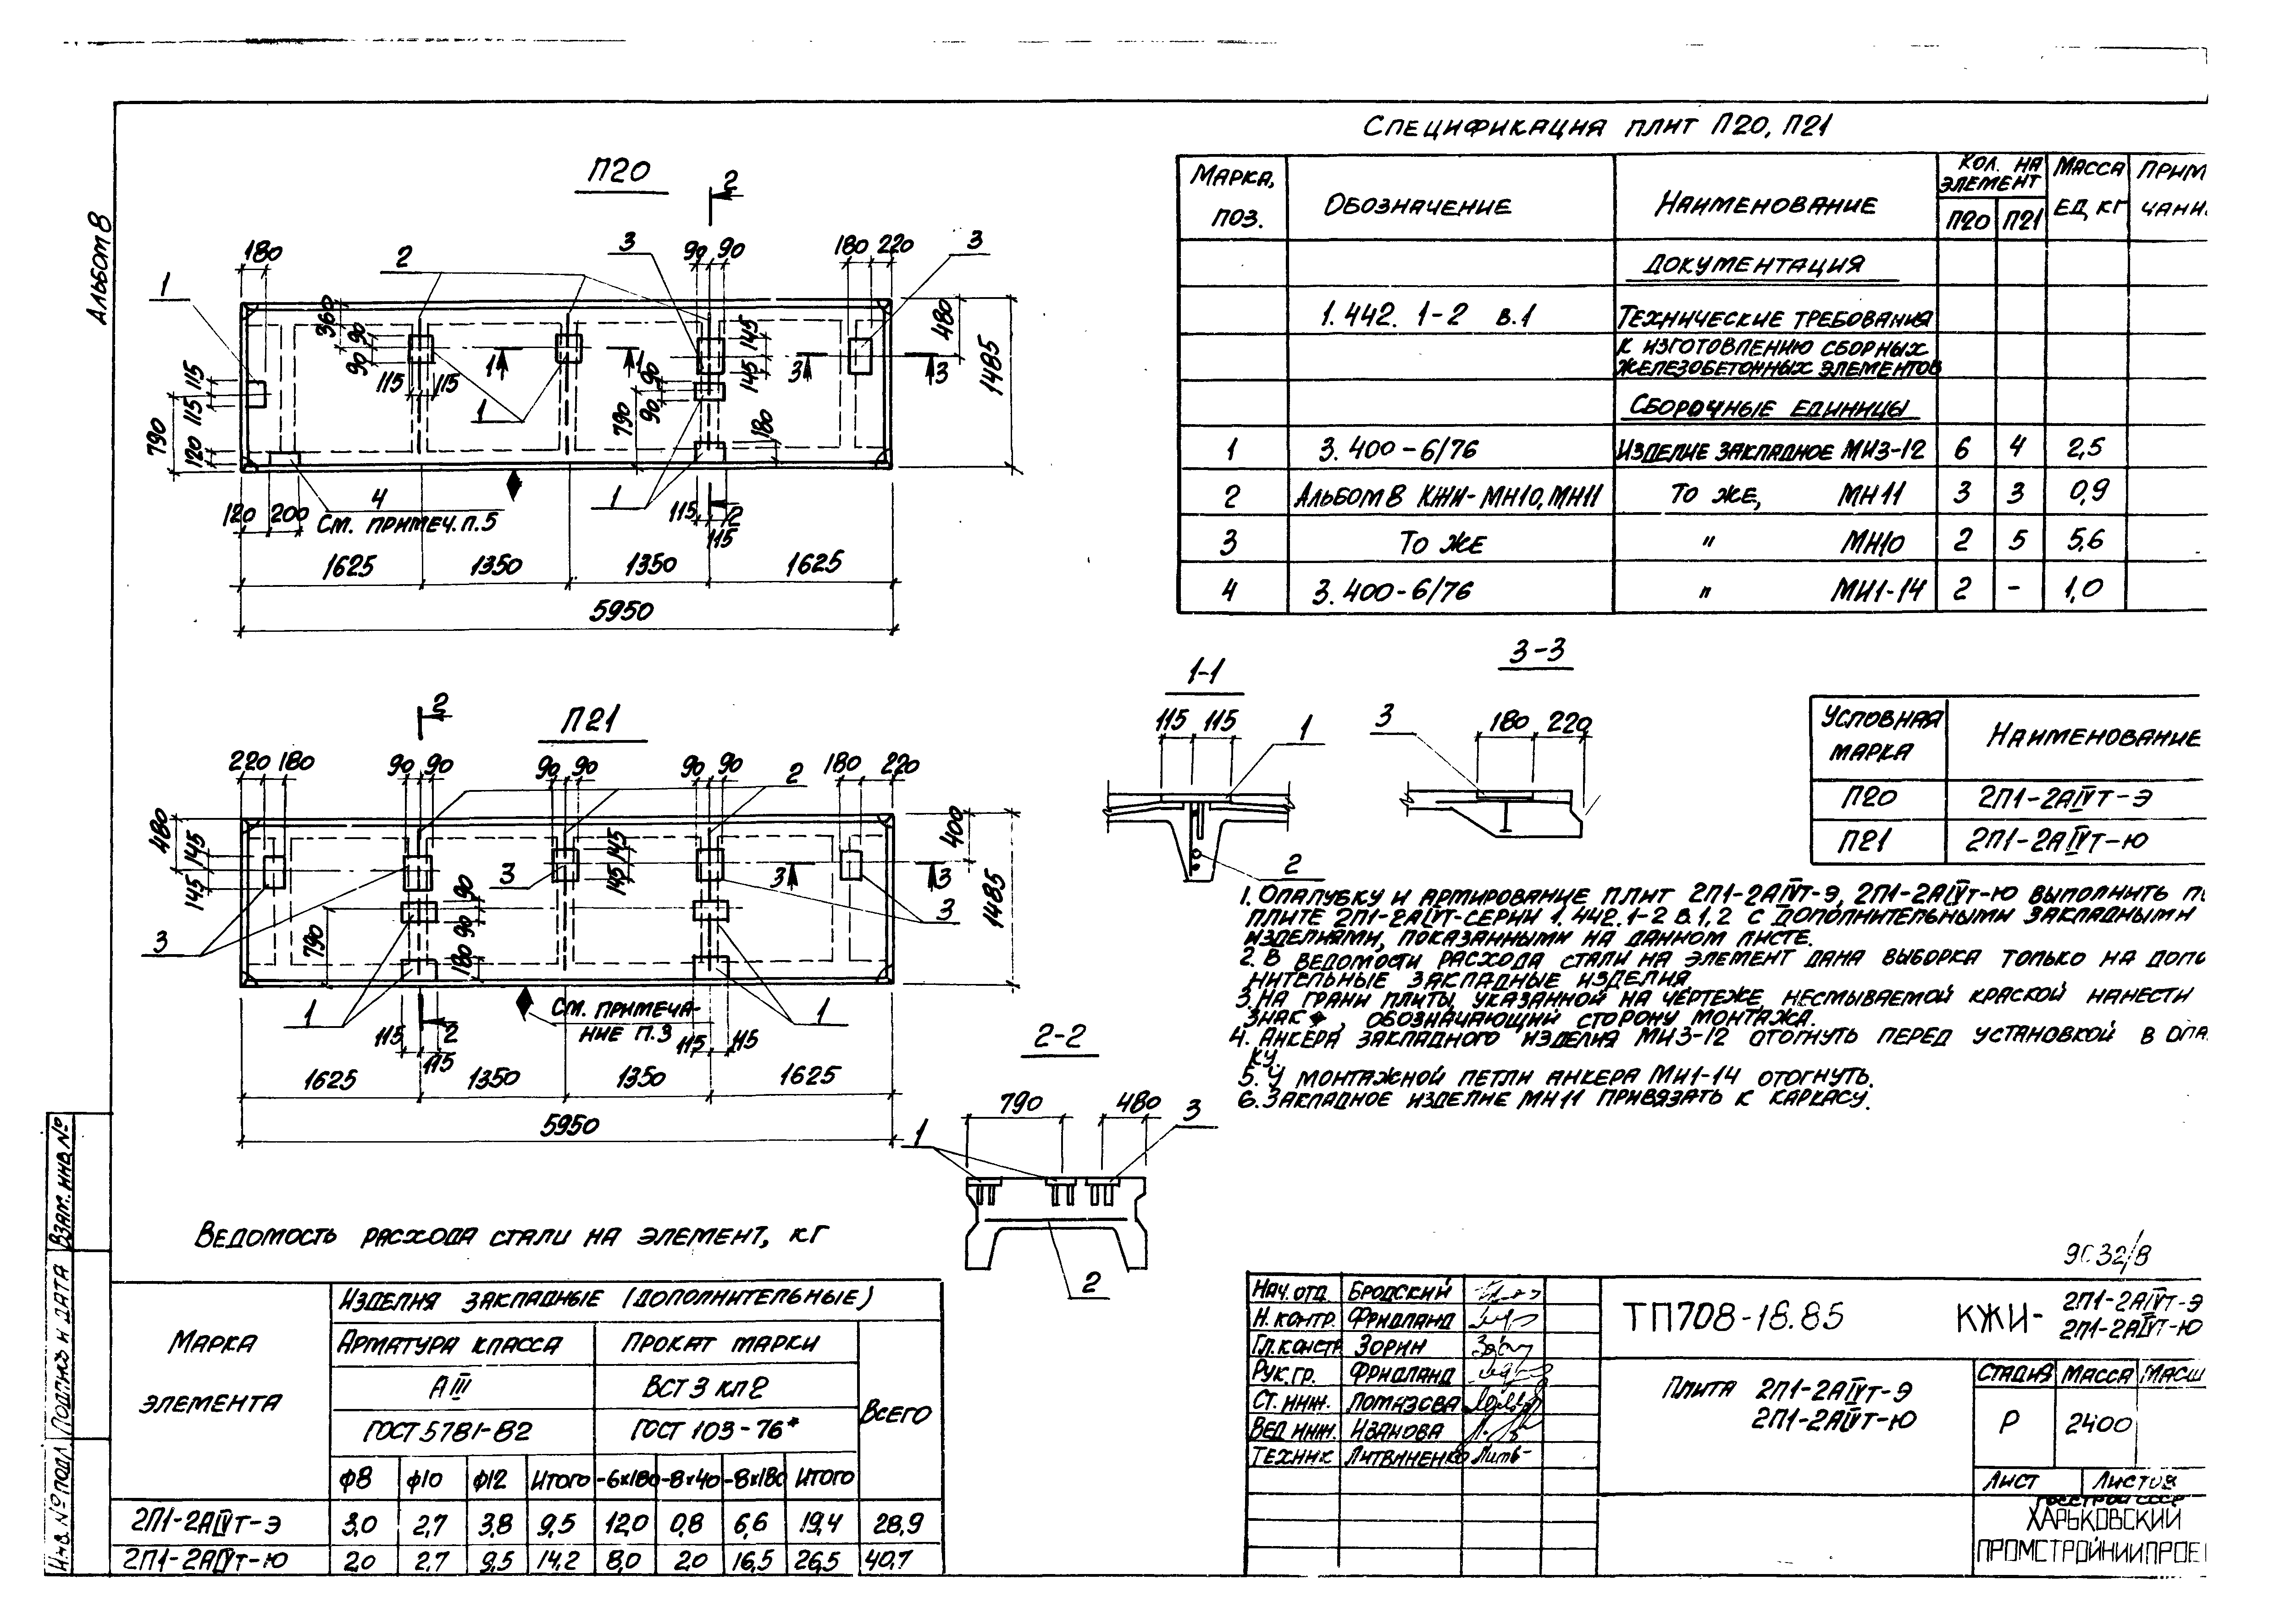 Альбом 8
П20
2
180 2 3 90 90 180 220 3
1
360 90 90 115 115 1 1 1
145 145 3 3 480 1485
115 115 790 120
790 90 90 180
4 1 115 2 115
120 200 См. примеч. п.5
1625 1350 1350 1625
5950
2
П21
220 180 90 90 90 90 2 90 90 180 220
480 145 145 3 145 145 3 3 400 1485
3 90 90 3 3
790 180
1 См. примеча- 1
115 2 115 ние п.3 115 115
1625 1350 1350 1625
5950
Спецификация плит П20, П21
Марка, поз. Обозначение Наименование Кол. на элемент Масса ед. кг Прим
П20 П21 чани
Документация
1.442. 1-2 в.1 Технические требования
к изготовлению сборных
железобетонных элементов
Сборочные единицы
1 3.400-6/76 Изделие закладное МИ3-12 6 4 2,5
2 Альбом 8 КЖИ-МН10, МН11 То же, МН11 3 3 0,9
3 То же " МН10 2 5 5,6
4 3.400-6/76 " МИ1-14 2 - 1,0
1-1
115 115 1
2
3-3
3 180 220
Условная марка Наименование
П20 2П1-2АIVт-Э
П21 2П1-2АIVт-Ю
1. Опалубку и армирование плит 2П1-2АIVт-Э, 2П1-2АIVт-Ю выполнить п
плите 2П1-2АIVт-серии 1.442.1-2 в.1,2 с дополнительными закладными
изделиями, показанными на данном листе.
2. В ведомости расхода стали на элемент дана выборка только на допо
нительные закладные изделия.
3. На грани плиты, указанной на чертеже, несмываемой краской нанести
знак ♦, обозначающий сторону монтажа.
4. Анкера закладного изделия МИ3-12 отогнуть перед установкой в опа
ку.
5. У монтажной петли анкера МИ1-14 отогнуть.
6. Закладное изделие МН11 привязать к каркасу.
2-2
790 480 3
1
2
Ведомость расхода стали на элемент, кг
Марка элемента Изделия закладные (дополнительные) Всего
Арматура класса Прокат марки
АIII ВСт3 кп2
ГОСТ 5781-82 ГОСТ 103-76*
ф8 ф10 ф12 Итого -6х180 -8х40 -8х180 Итого
2П1-2АIVт-Э 3,0 2,7 3,8 9,5 12,0 0,8 6,6 19,4 28,9
2П1-2АIVт-Ю 2,0 2,7 9,5 14,2 8,0 2,0 16,5 26,5 40,7
Инв. № подл. Подпись и дата Взам. инв. №
Нач. отд. Бродский
Н. контр. Фридланд
Гл. констр. Зорин
Рук. гр. Фридланд
Ст. инж. Ломазова
Вед. инж. Иванова
Техник Литвиненко
ТП708-18.85 КЖИ- 2П1-2АIVт-Э
2П1-2АIVт-Ю
Плита 2П1-2АIVт-Э
2П1-2АIVт-Ю
Стадия Масса Масш
Р 2400
Лист Листов
Госстрой СССР
Харьковский
Промстройниипрое